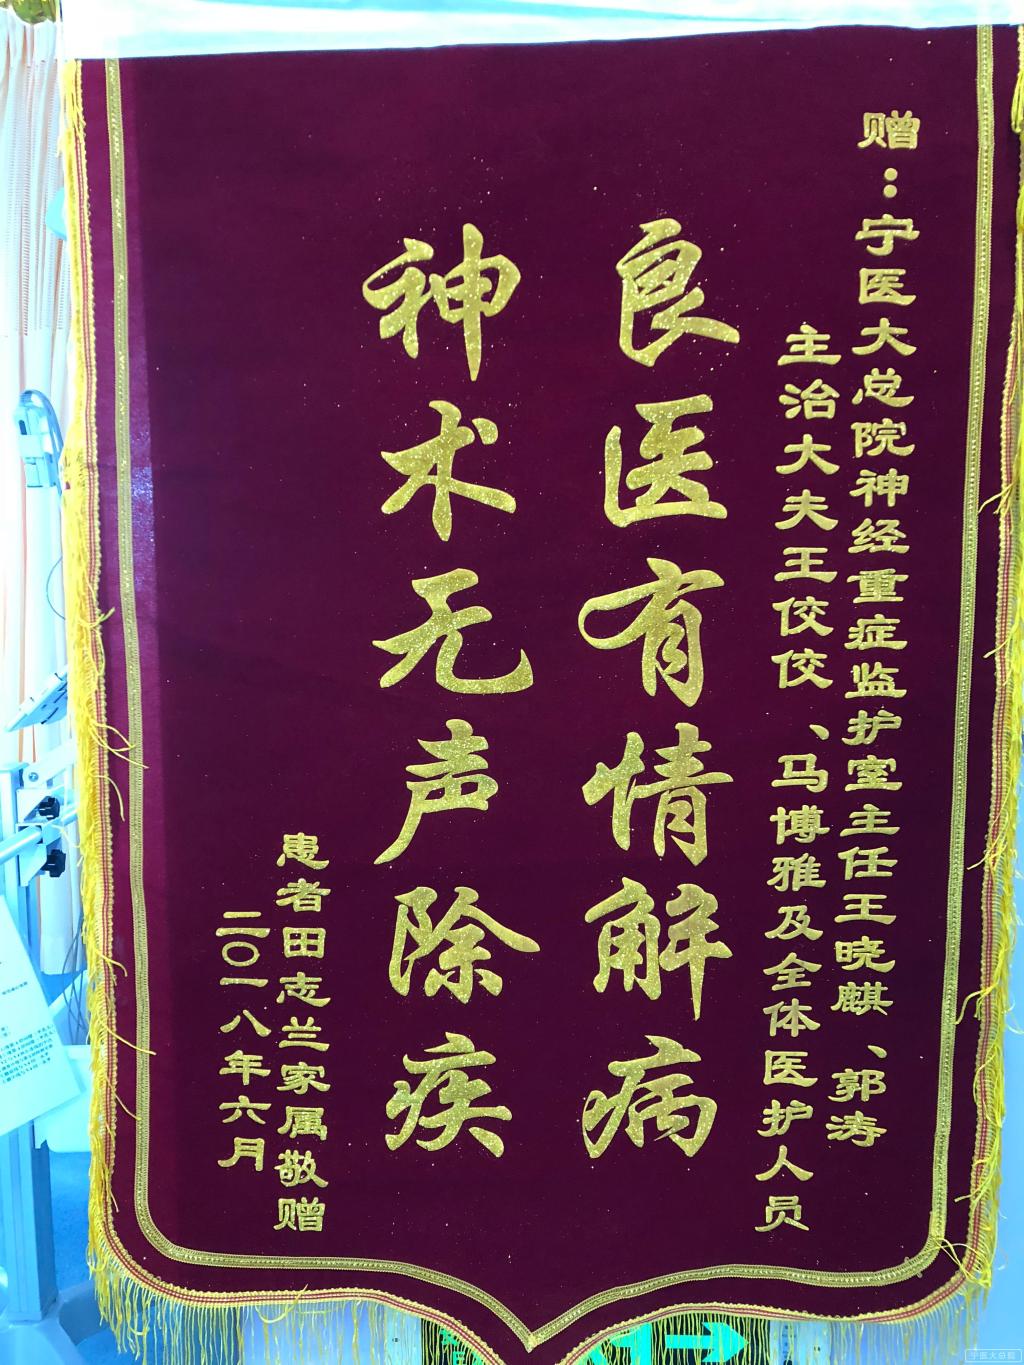 赠：宁医大总院神经重症监护室主任王晓麒、郭涛
主治大夫王佼佼、马博雅及全体医护人员
良医有情解病
神术无声除疾
患者田志兰家属敬赠
二〇一八年六月
宁医大总院